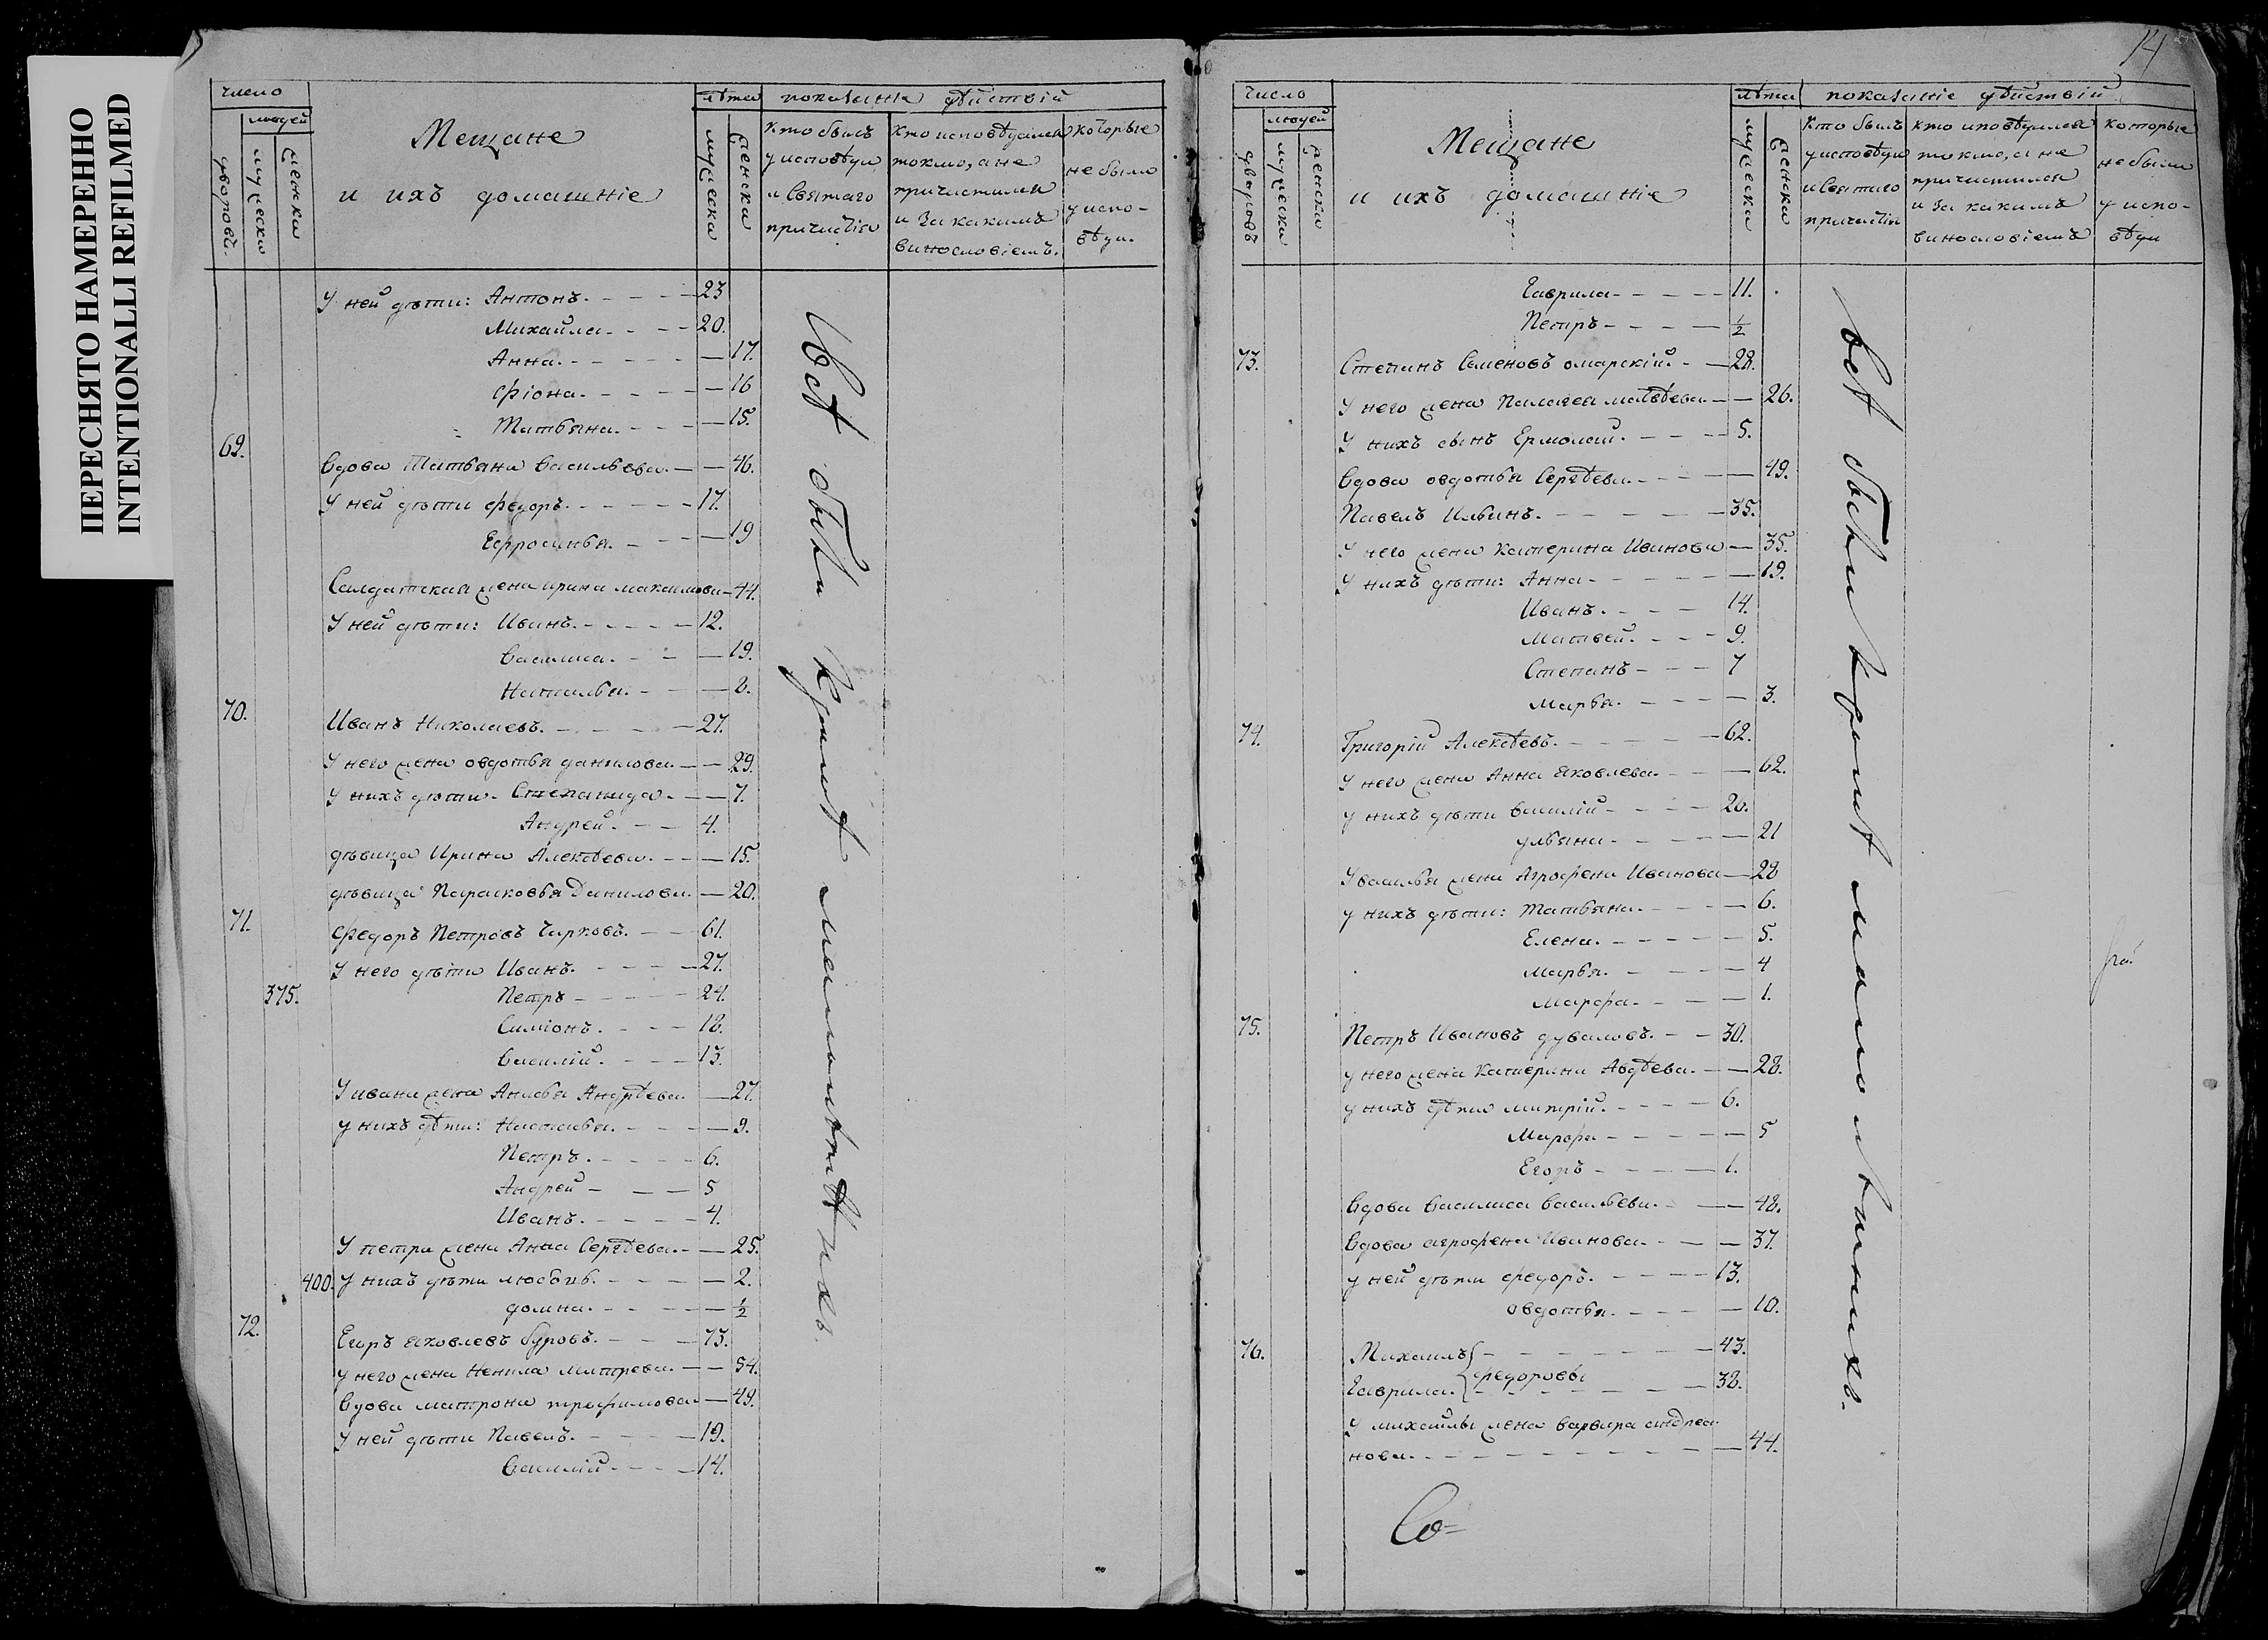 ПЕРЕСНЯТО НАМЕРЕННО
INTENTIONALLI REFILMED
число
людей
дворовъ.
мужеска
женска
Мещане
и ихъ домашніе
лѣта
мужеска
женска
показаніе дѣйствій
Кто былъ
у исповѣди
и Святаго
причастія
Кто исповѣдался
токмо, а не
причастился
и за какимъ
винословіемъ.
которые
не были
у испо-
вѣди.
У ней дѣти: Антонъ. 23
Михайла. 20.
Анна. 17.
Фіона. 16
Татьяна. 15.
69.
Вдова Татьяна Васильева. 46.
У ней дѣти Федоръ. 17.
Ефросинья. 19
Салдатская жена Ирина Максимова 44.
У ней дѣти: Иванъ. 12.
Василиса. 19.
Наталья. 8.
70. Иванъ Николаевъ. 27.
У него жена Овдотья Данилова. 29.
У нихъ дѣти. Степанида. 7.
Андрей. 4.
дѣвица Ирина Алексѣева. 15.
дѣвица Парасковья Данилова. 20.
71. Федоръ Петровъ Чирковъ. 61.
У него дѣти Иванъ. 27.
375. Петръ 24.
Симіонъ. 18.
Василій. 13.
У Ивана жена Анисья Андрѣева 27.
у нихъ дѣти: Настасья. 9.
Петръ. 6.
Андрей 5
Иванъ. 4.
У Петра жена Анна Сергѣева. 25.
400. у нихъ дѣти Любовь. 2.
Домна. 1/2
72. Егоръ Яковлевъ Буровъ. 73.
у него жена Ненила Митрева. 54.
Вдова Матрона Трофимова 49.
У ней дѣти Павелъ. 19.
Василій 14.
Всѣ были кромѣ малолѣтнихъ.
14
число
людей
дворовъ
мужеска
женска
Мещане
и ихъ домашніе
лѣта
мужеска
женска
показаніе дѣйствій
Кто былъ
у исповѣди
и Святаго
причастія
кто исповѣдался
токмо, а не
причастился
и за какимъ
винословіемъ
которые
не были
у испо-
вѣди
Гаврила 11.
Петръ 1/2
73. Степанъ Семеновъ Омарскій. 28.
У него жена Палагея Матвѣева 26.
У нихъ сынъ Ермолай. 5.
Вдова Овдотья Сергѣева. 49.
Павелъ Ильинъ. 35.
У него жена Катерина Иванова 35.
У нихъ дѣти: Анна 19.
Иванъ. 14.
Матвей. 9.
Степанъ 7
Марья. 3.
74. Григорій Алексѣевъ. 62.
У него жена Анна Яковлева. 62.
у нихъ дѣти Василій 20.
Ульяна. 21
У Василья жена Агрофена Иванова 28
у нихъ дѣти: Татьяна. 6.
Елена. 5.
Марья. 4
Марфа. 1.
75. Петръ Ивановъ Дуваловъ. 30.
у него жена Катерина Авдѣева. 28.
у нихъ дѣти Митрій. 6.
Марфа 5
Егоръ 1.
Вдова Василиса Васильева. 48.
Вдова Агрофена Иванова. 37.
у ней дѣти Федоръ. 13.
Овдотья. 10.
76. Михаилъ 43.
Федоровы
Гаврила. 38.
У Михайлы жена Варвара Андреа
нова. 44.
Всѣ были кромѣ малолѣтнихъ.
Со=